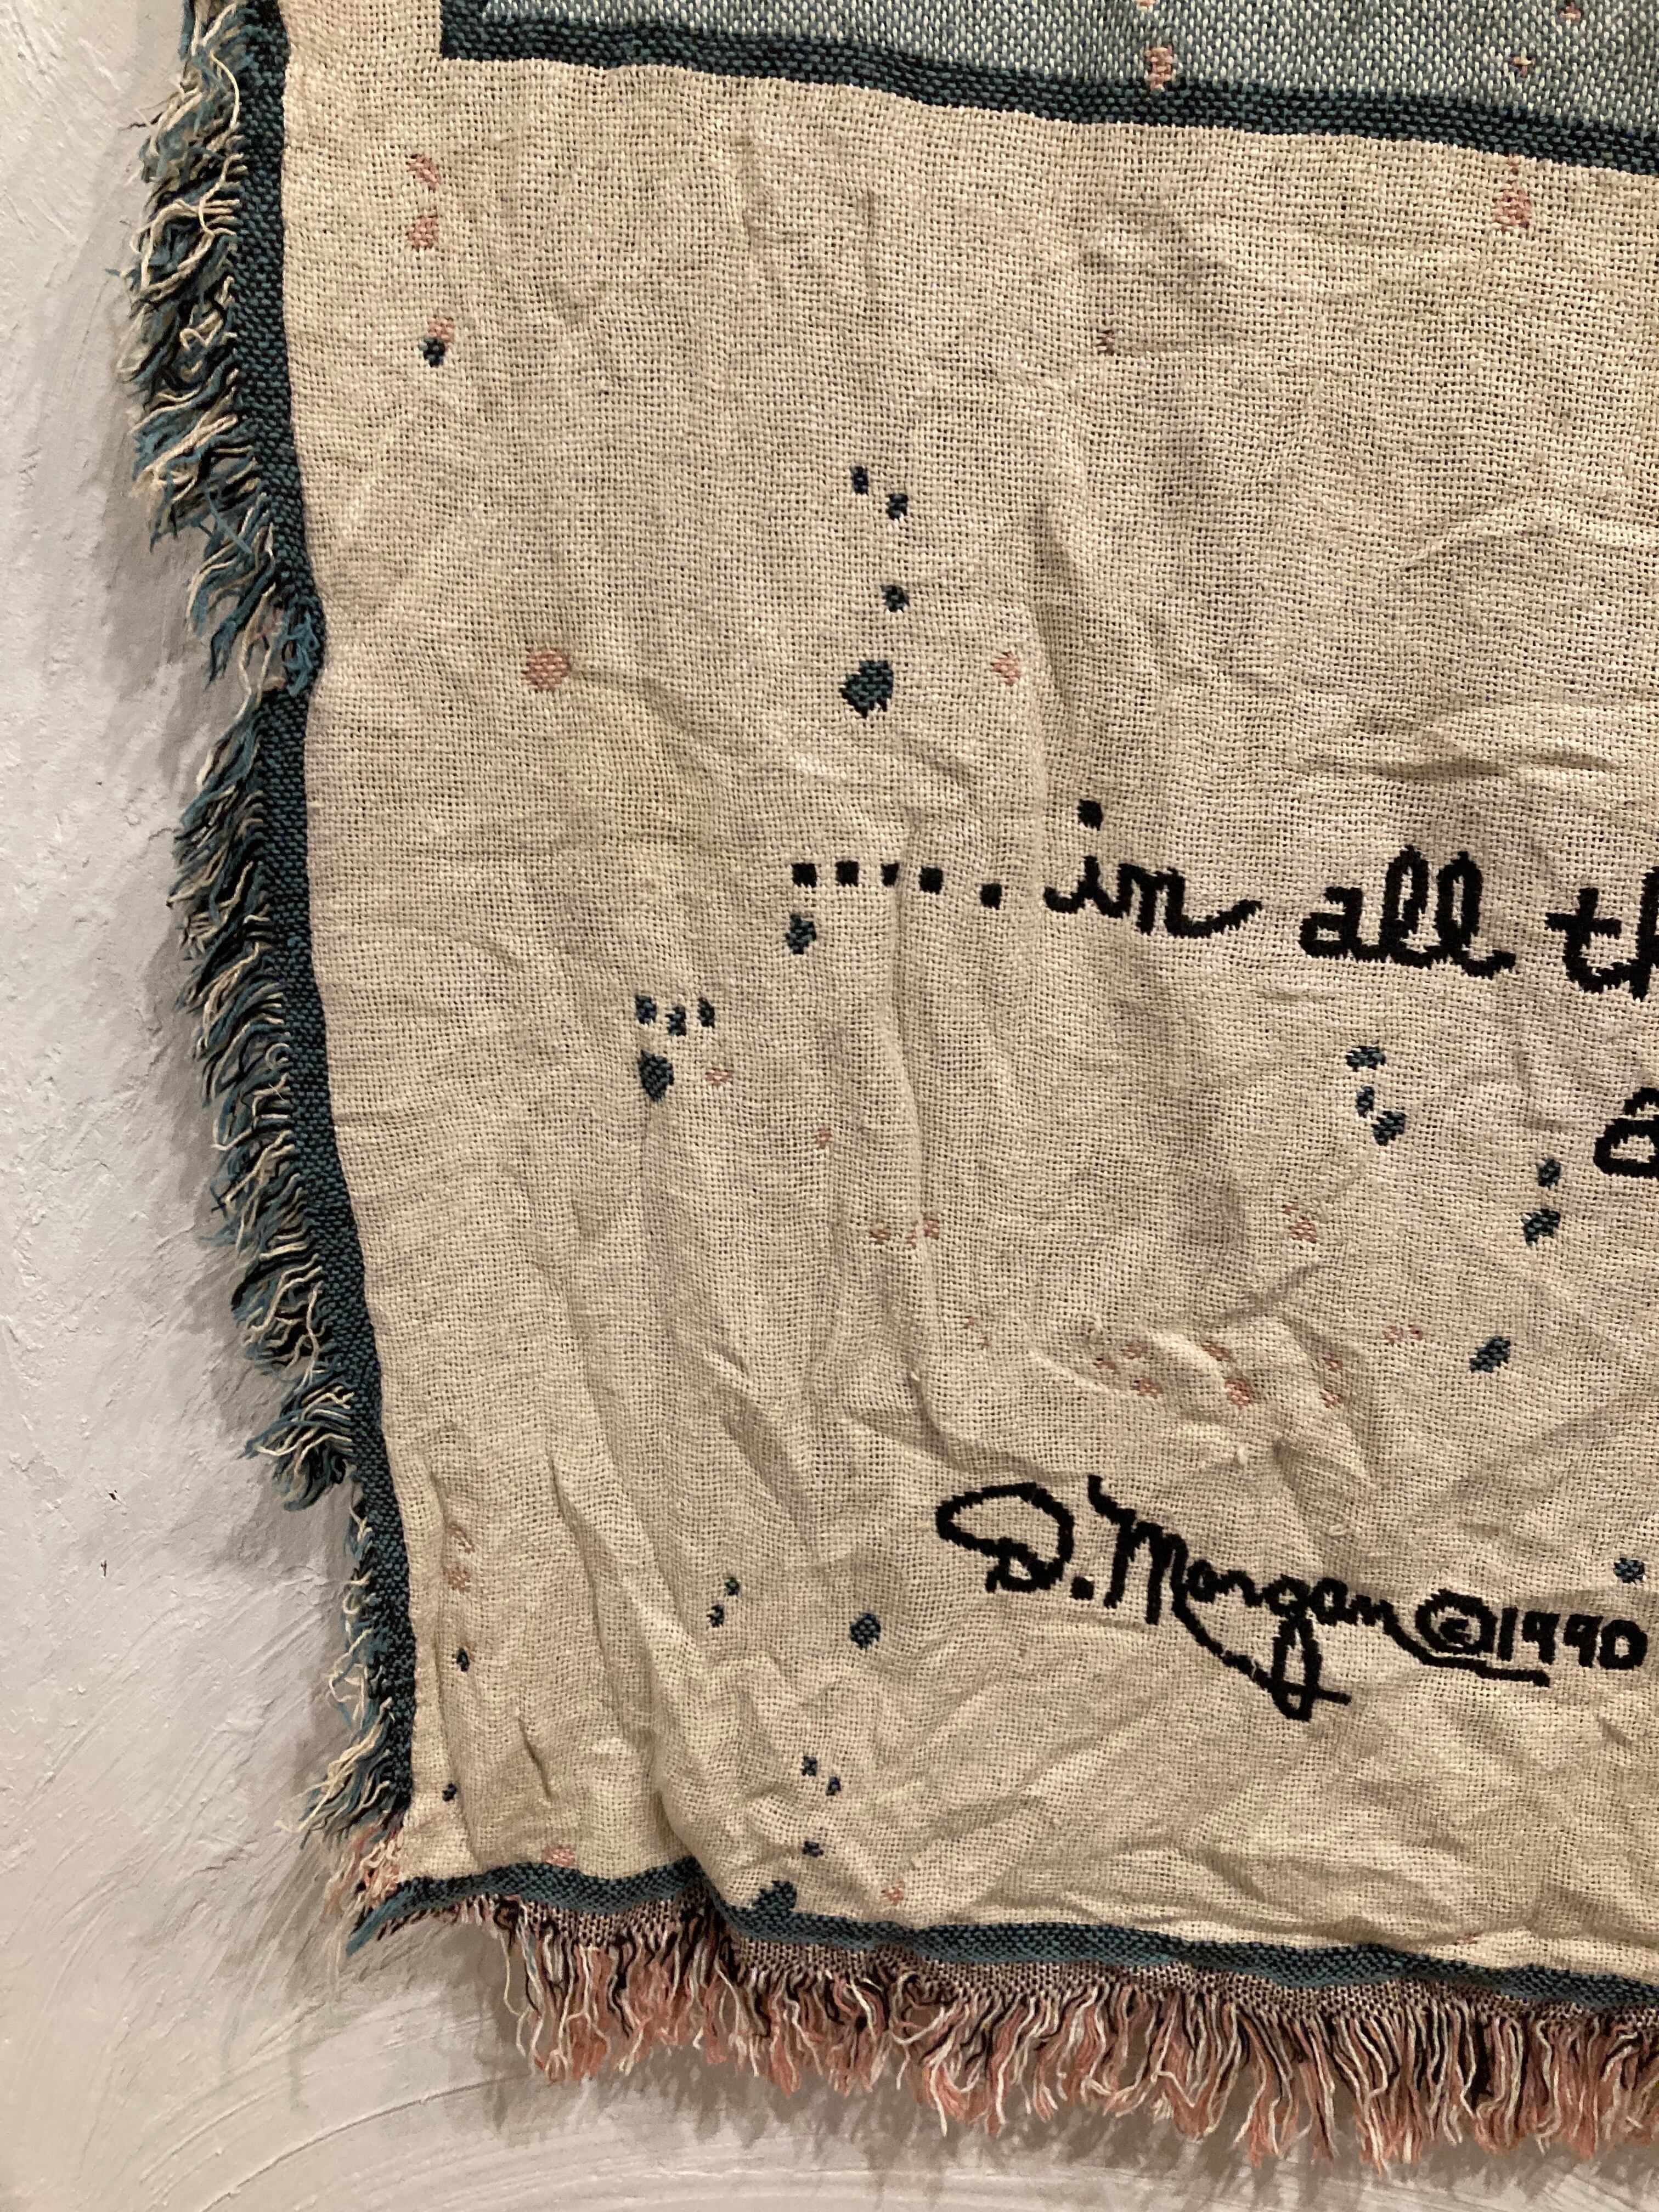 ..... in all th
a
D. Morgan ©1990